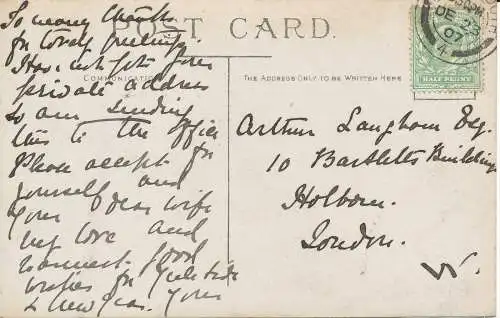 POST CARD.
COMMUNICATION
THE ADDRESS ONLY TO BE WRITTEN HERE
So many thanks
for lovely greetings.
Have not got your
private address
so am sending
this to the office
Please accept for
yourself and
your dear wife
my love and
warmest good
wishes for Yuletide
& New Year. Yours
Arthur Langhorn Esq.
10 Bartletts Buildings
Holborn.
London.
DE 23
07
HALF PENNY